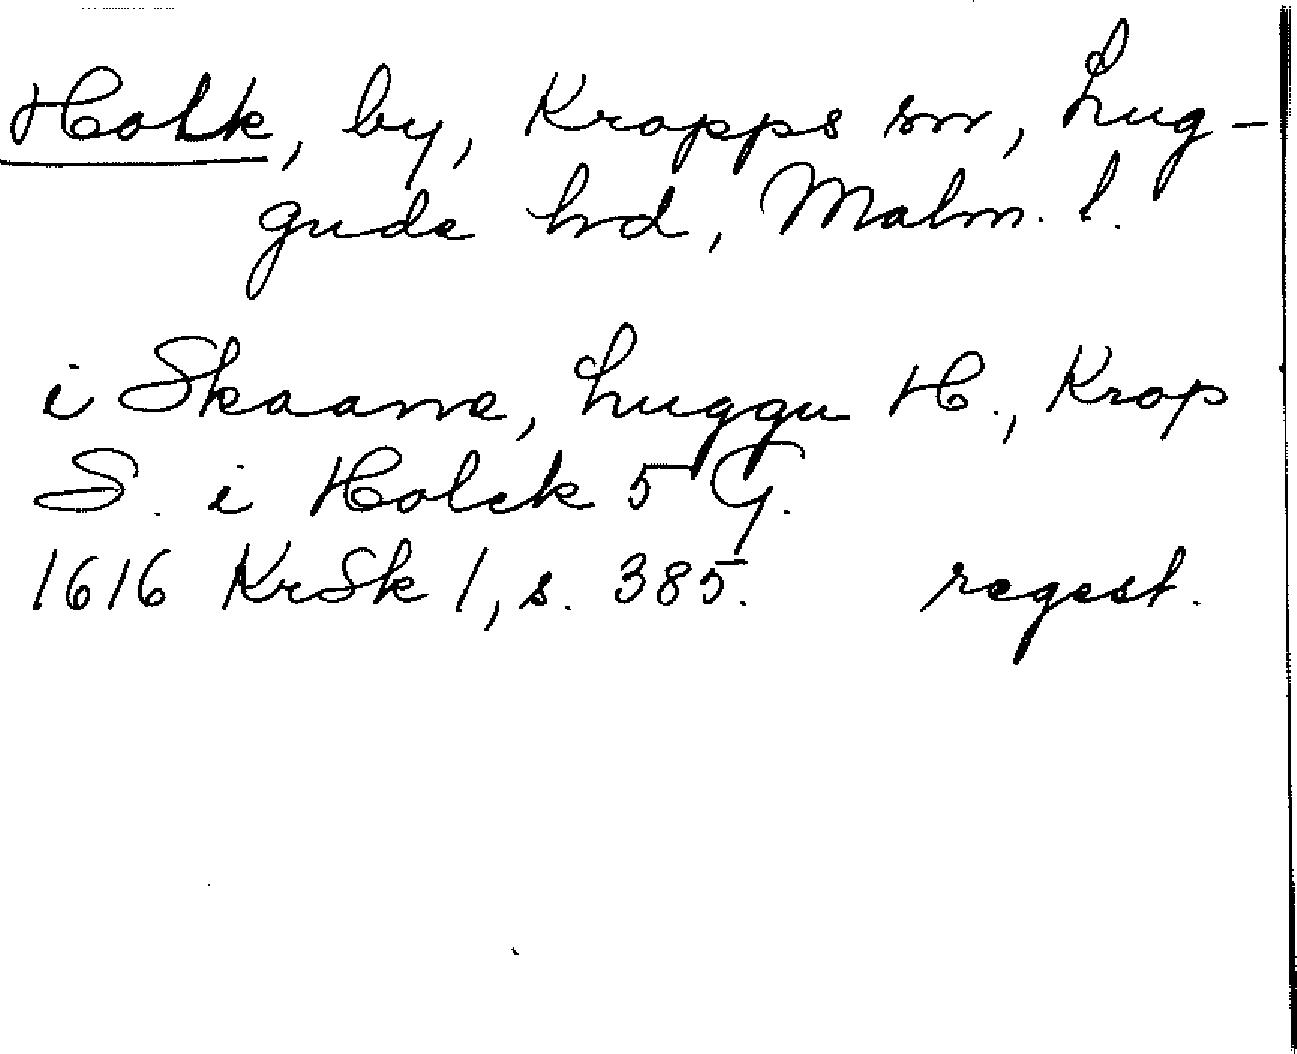 Holk, by, Kropps sn, Lug-
gude hd, Malm. l.
i Skaane, Luggu H., Krop
S. i Holck 5 G.
1616 KrSk 1, s. 385. regest.